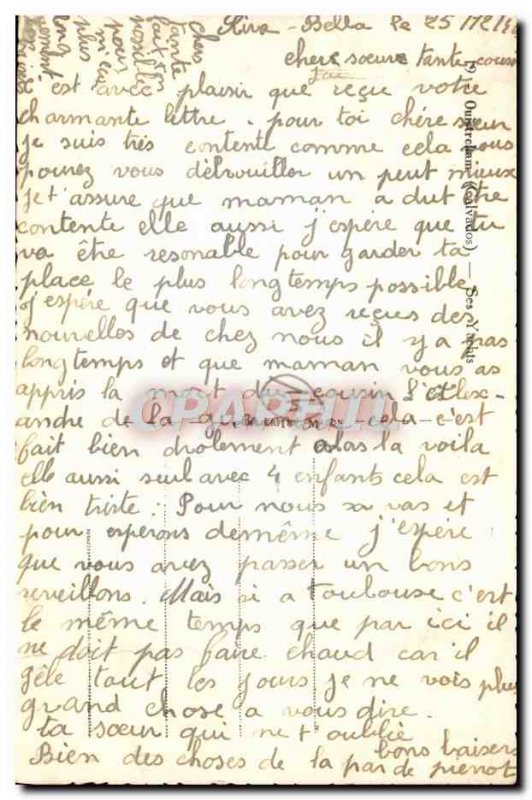 Riva-Bella le 25/12/
chere soeur tante cousin
J'ai
c'est avec plaisir que reçue votre
charmante lettre. pour toi chére soeur
je suis trés contente comme cela vous
pourez vous débrouiller un peut mieux
Je t'assure que maman a dut être
contente elle aussi j'espére que tu
va être resonable pour garder ta
place le plus longtemps possible
j'espére que vous avez reçues des
nouvelles de chez nous il y a pas
longtemps et que maman vous as
appris la mort du cousin
andre de la cela c'est
fait bien drolement alors la voila
elle aussi seul avec 4 enfants cela est
bien triste. Pour nous sa vas et
pour esperons demême j'espére
que vous avez passer un bons
reveillons. Mais si a Toulouse c'est
le même temps que par ici il
ne doit pas faire chaud car il
gèle tout les jours je ne vois plus
grand chose a vous dire.
ta soeur qui ne t'oublie
bons baisers
Bien des choses de la par de pierrot
chez
tante
faut en
possible
pour
mieux
plus
long
19) Ouistreham (Calvados) — Ses Yachts
CPARAMA